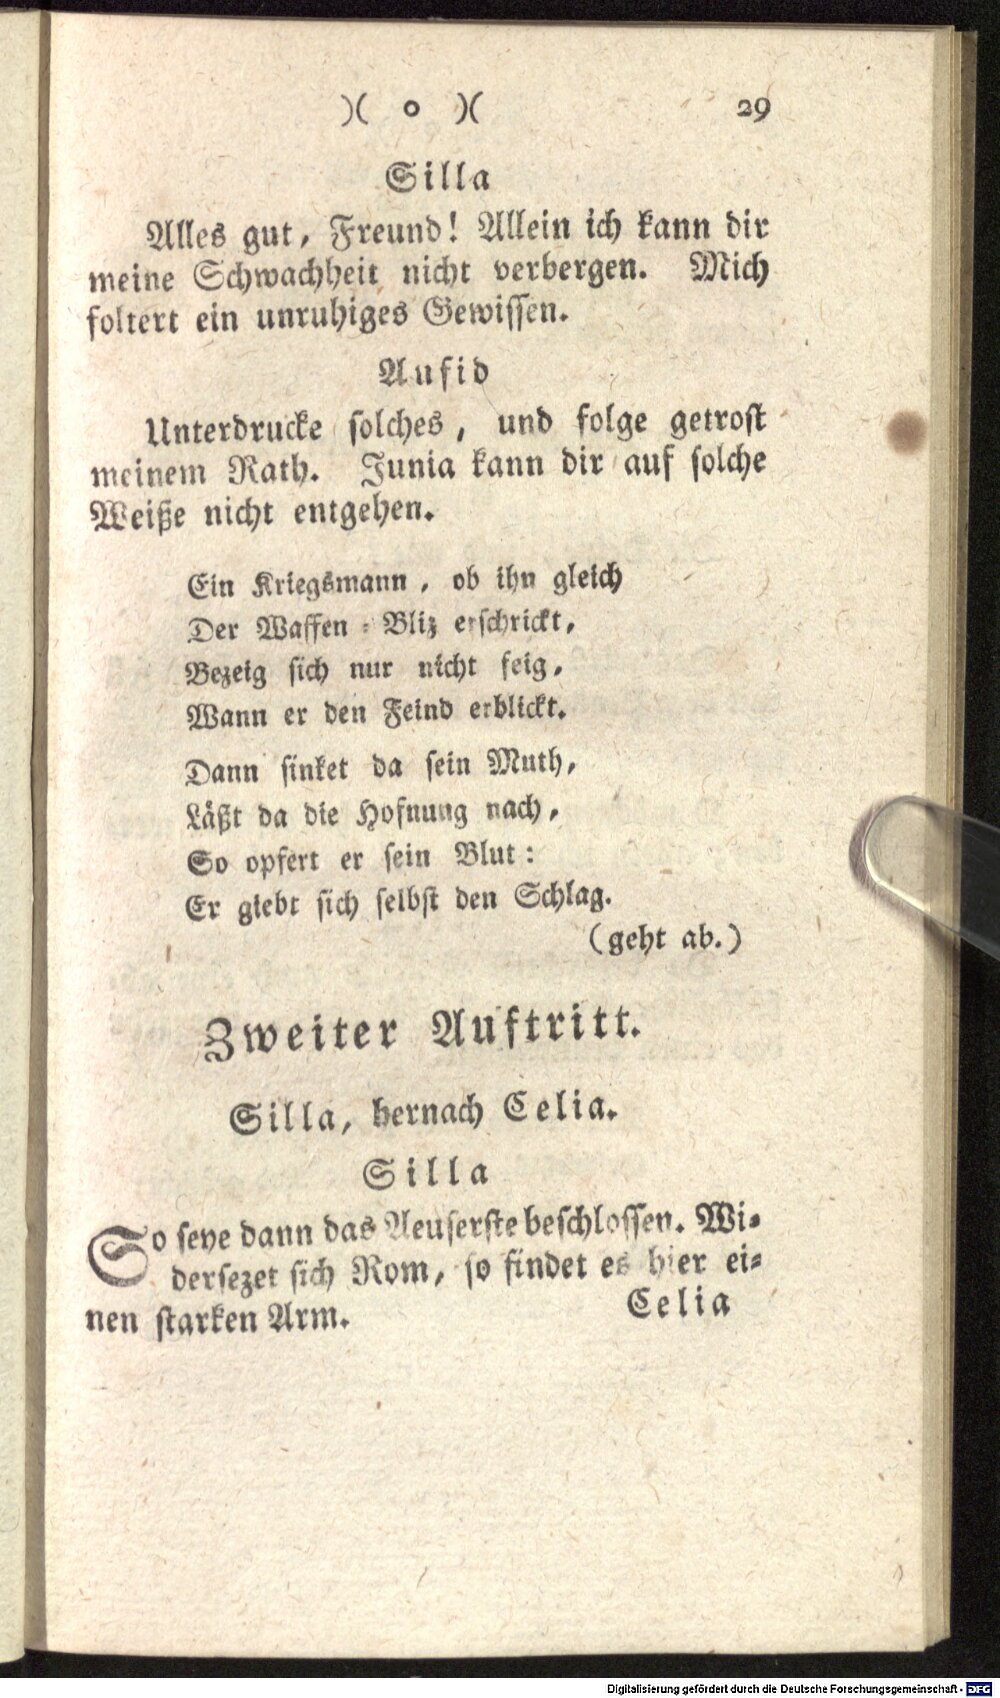 )( o )( 29
Silla
Alles gut, Freund! Allein ich kann dir
meine Schwachheit nicht verbergen. Mich
foltert ein unruhiges Gewissen.
Aufid
Unterdrucke solches, und folge getrost
meinem Rath. Junia kann dir auf solche
Weiße nicht entgehen.
Ein Kriegsmann, ob ihn gleich
Der Waffen-Bliz erschrickt,
Bezeig sich nur nicht feig,
Wann er den Feind erblickt.
Dann sinket da sein Muth,
Läßt da die Hofnung nach,
So opfert er sein Blut:
Er giebt sich selbst den Schlag.
(geht ab.)
Zweiter Auftritt.
Silla, hernach Celia.
Silla
So seye dann das Aeuserste beschlossen. Wi-
dersezet sich Rom, so findet es hier ei-
nen starken Arm.
Celia
Digitalisierung gefördert durch die Deutsche Forschungsgemeinschaft - DFG